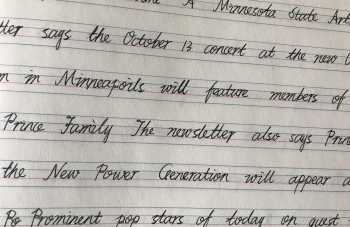 A Minnesota State Art
says the October 13 concert at the new
in Minneapoils will feature members of
Prince Family The newsletter also says Prin
the New Power Generation will appear a
Ps Prominent pop stars of today on guest